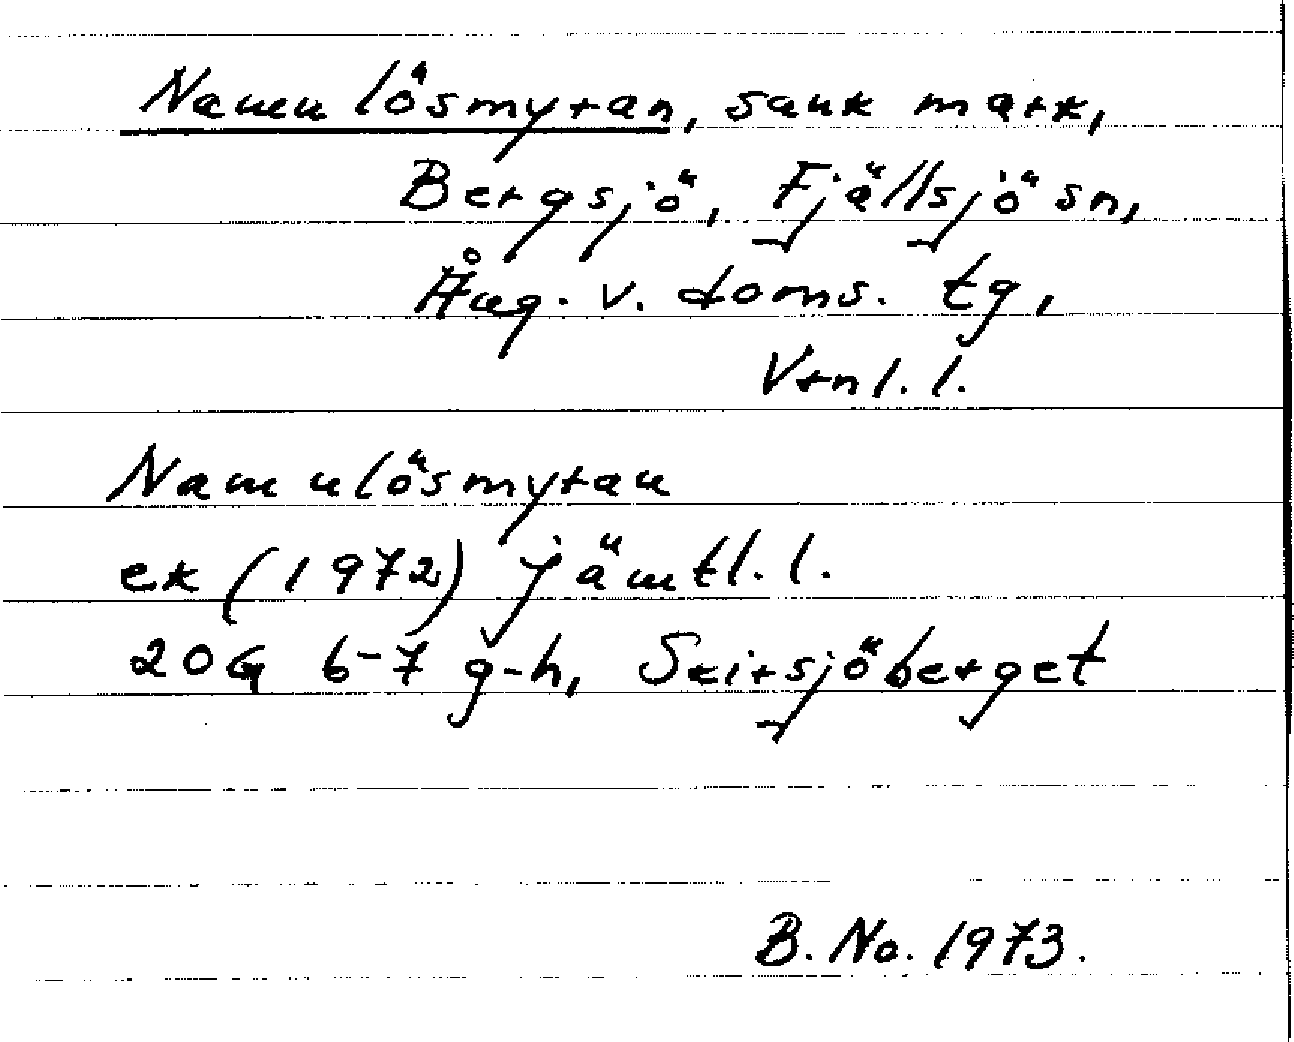 Namnlösmyran, sank mark,
Bergsjö, Fjällsjö sn,
Ång. v. doms. tg,
Vrnl. l.
Namnlösmyran
ek (1972) Jämtl. l.
20G 6-7 g-h, Skirsjöberget
B. No. 1973.